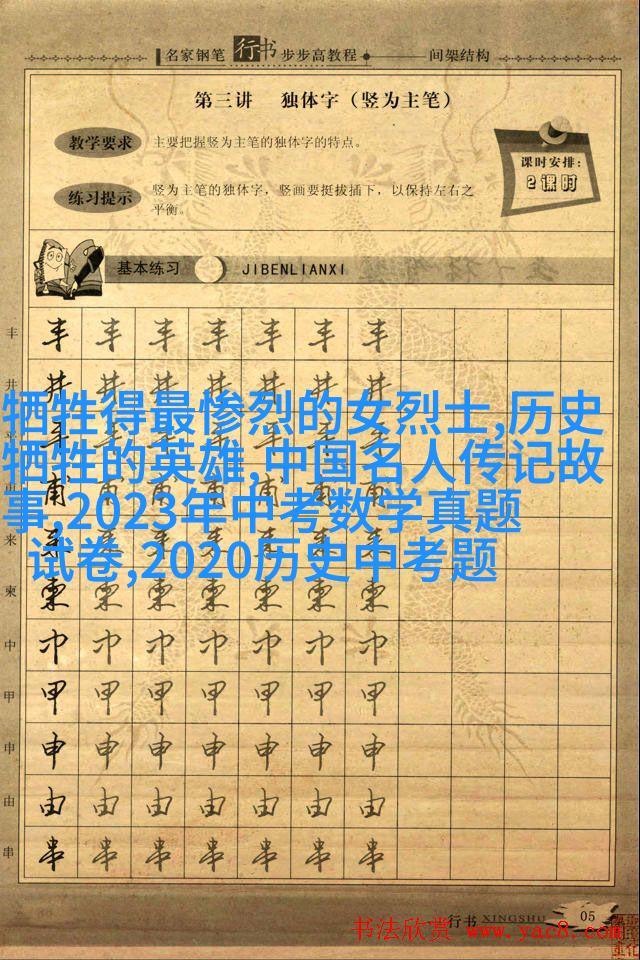 名家钢笔行书步步高教程 间架结构
第三讲 独体字（竖为主笔）
教学要求 主要把握竖为主笔的独体字的特点。
课时安排：
2课时
练习提示 竖为主笔的独体字，竖画要挺拔插下，以保持左右之
平衡。
基本练习 JIBENLIANXI
丰 丰丰丰丰丰丰丰
井 井井井井井井井
牺牲得最惨烈的女烈士,历史
牺牲的英雄,中国名人传记故
事,2023年中考数学真题
试卷,2020历史中考题
来
柬 柬柬柬柬柬柬柬
中 中中中中中中中
甲 甲甲甲甲甲甲甲
申 申申申申申申申
由 由由由由由由由
串 串串串串串串串
行书 XINGSHU 05
书法欣赏 www.yac8.com